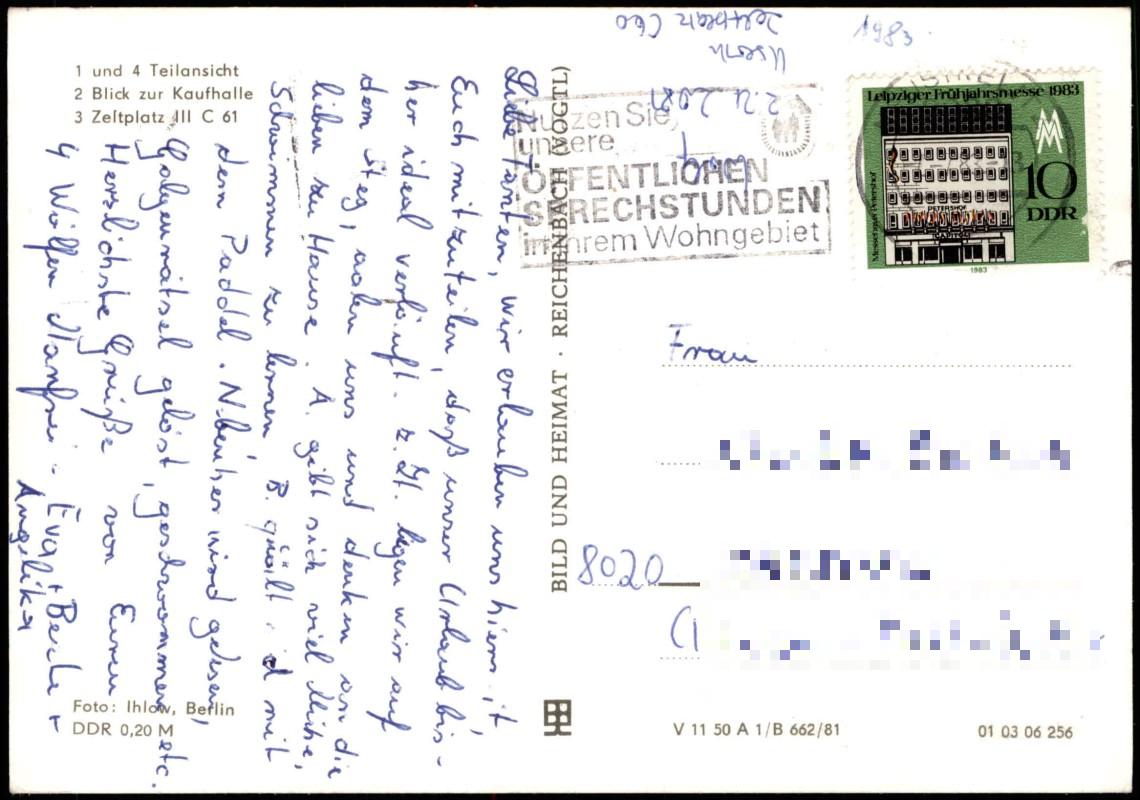 1 und 4 Teilansicht
2 Blick zur Kaufhalle
3 Zeltplatz III C 61
Liebe Tanten, wir erlauben uns hiermit,
Euch mitzuteilen, daß unser Urlaub bis-
her ideal verläuft. Z. Zt. liegen wir auf
dem Steg, aalen uns und denken an die
lieben zu Hause. A. gibt sich viel Mühe,
Schwimmen zu lernen, B. quält sich mit
dem Paddel. Nebenher wird gelesen,
Galgenrätsel gelöst, geschwommen etc.
Herzlichste Grüße von Euren
4 Wölfen Manfred - Eva + Beate +
Angelika
Foto: Ihlow, Berlin
DDR 0,20 M
BILD UND HEIMAT · REICHENBACH (VOGTL)
Zeltplatz C60
1983
Nutzen Sie
unsere
ÖFFENTLICHEN
SPRECHSTUNDEN
in Ihrem Wohngebiet
Leipziger Frühjahrsmesse 1983
MM
10
DDR
Messehaus Petershof
PETERSHOF
1983
Frau
8020
V 11 50 A 1/B 662/81
01 03 06 256